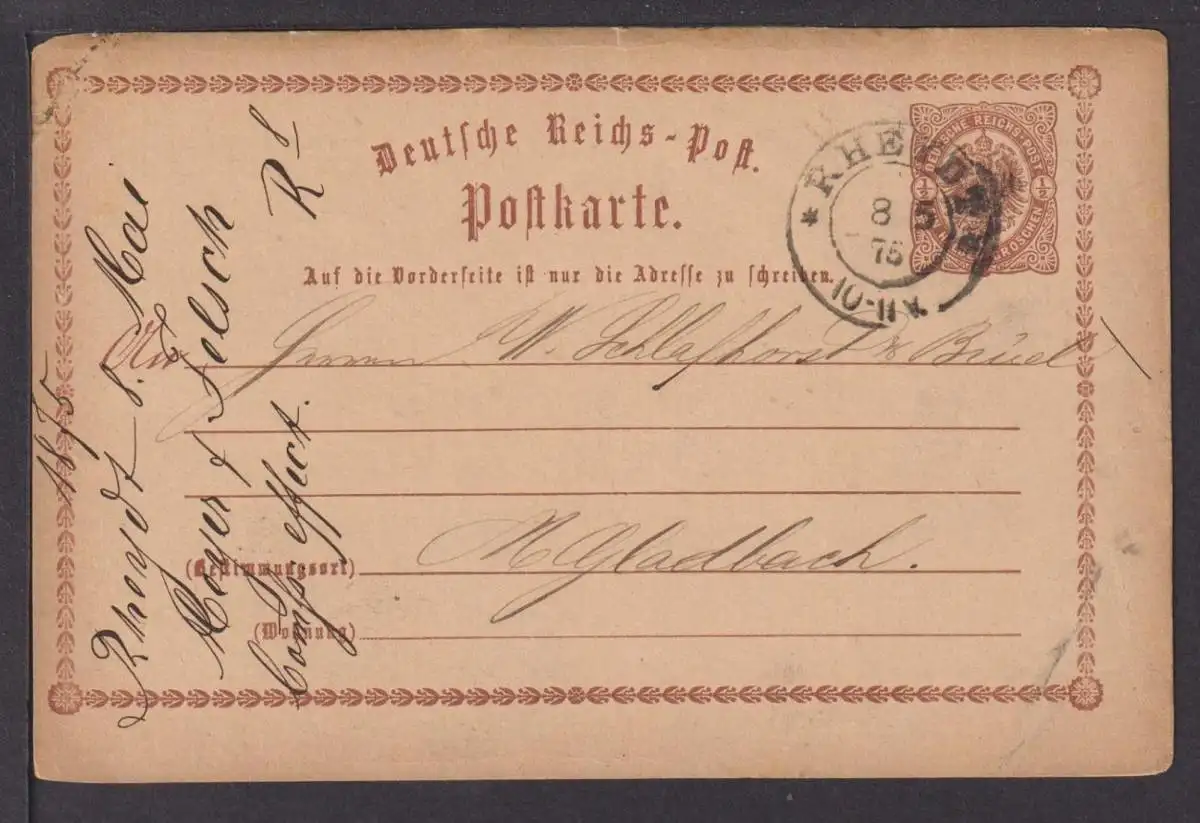 Deutsche Reichs-Post.
Postkarte.
Auf die Vorderseite ist nur die Adresse zu schreiben.
DEUTSCHE REICHS-POST
½ ½
GROSCHEN
* RHEYDT
8 5
75
10-11 V.
An Herrn W. Schlafhorst & Bruel
MGladbach.
(Bestimmungsort)
(Wohnung)
Rheydt 8. Mai
1875
Meyer & Felsch
Comp. effict.
R 8